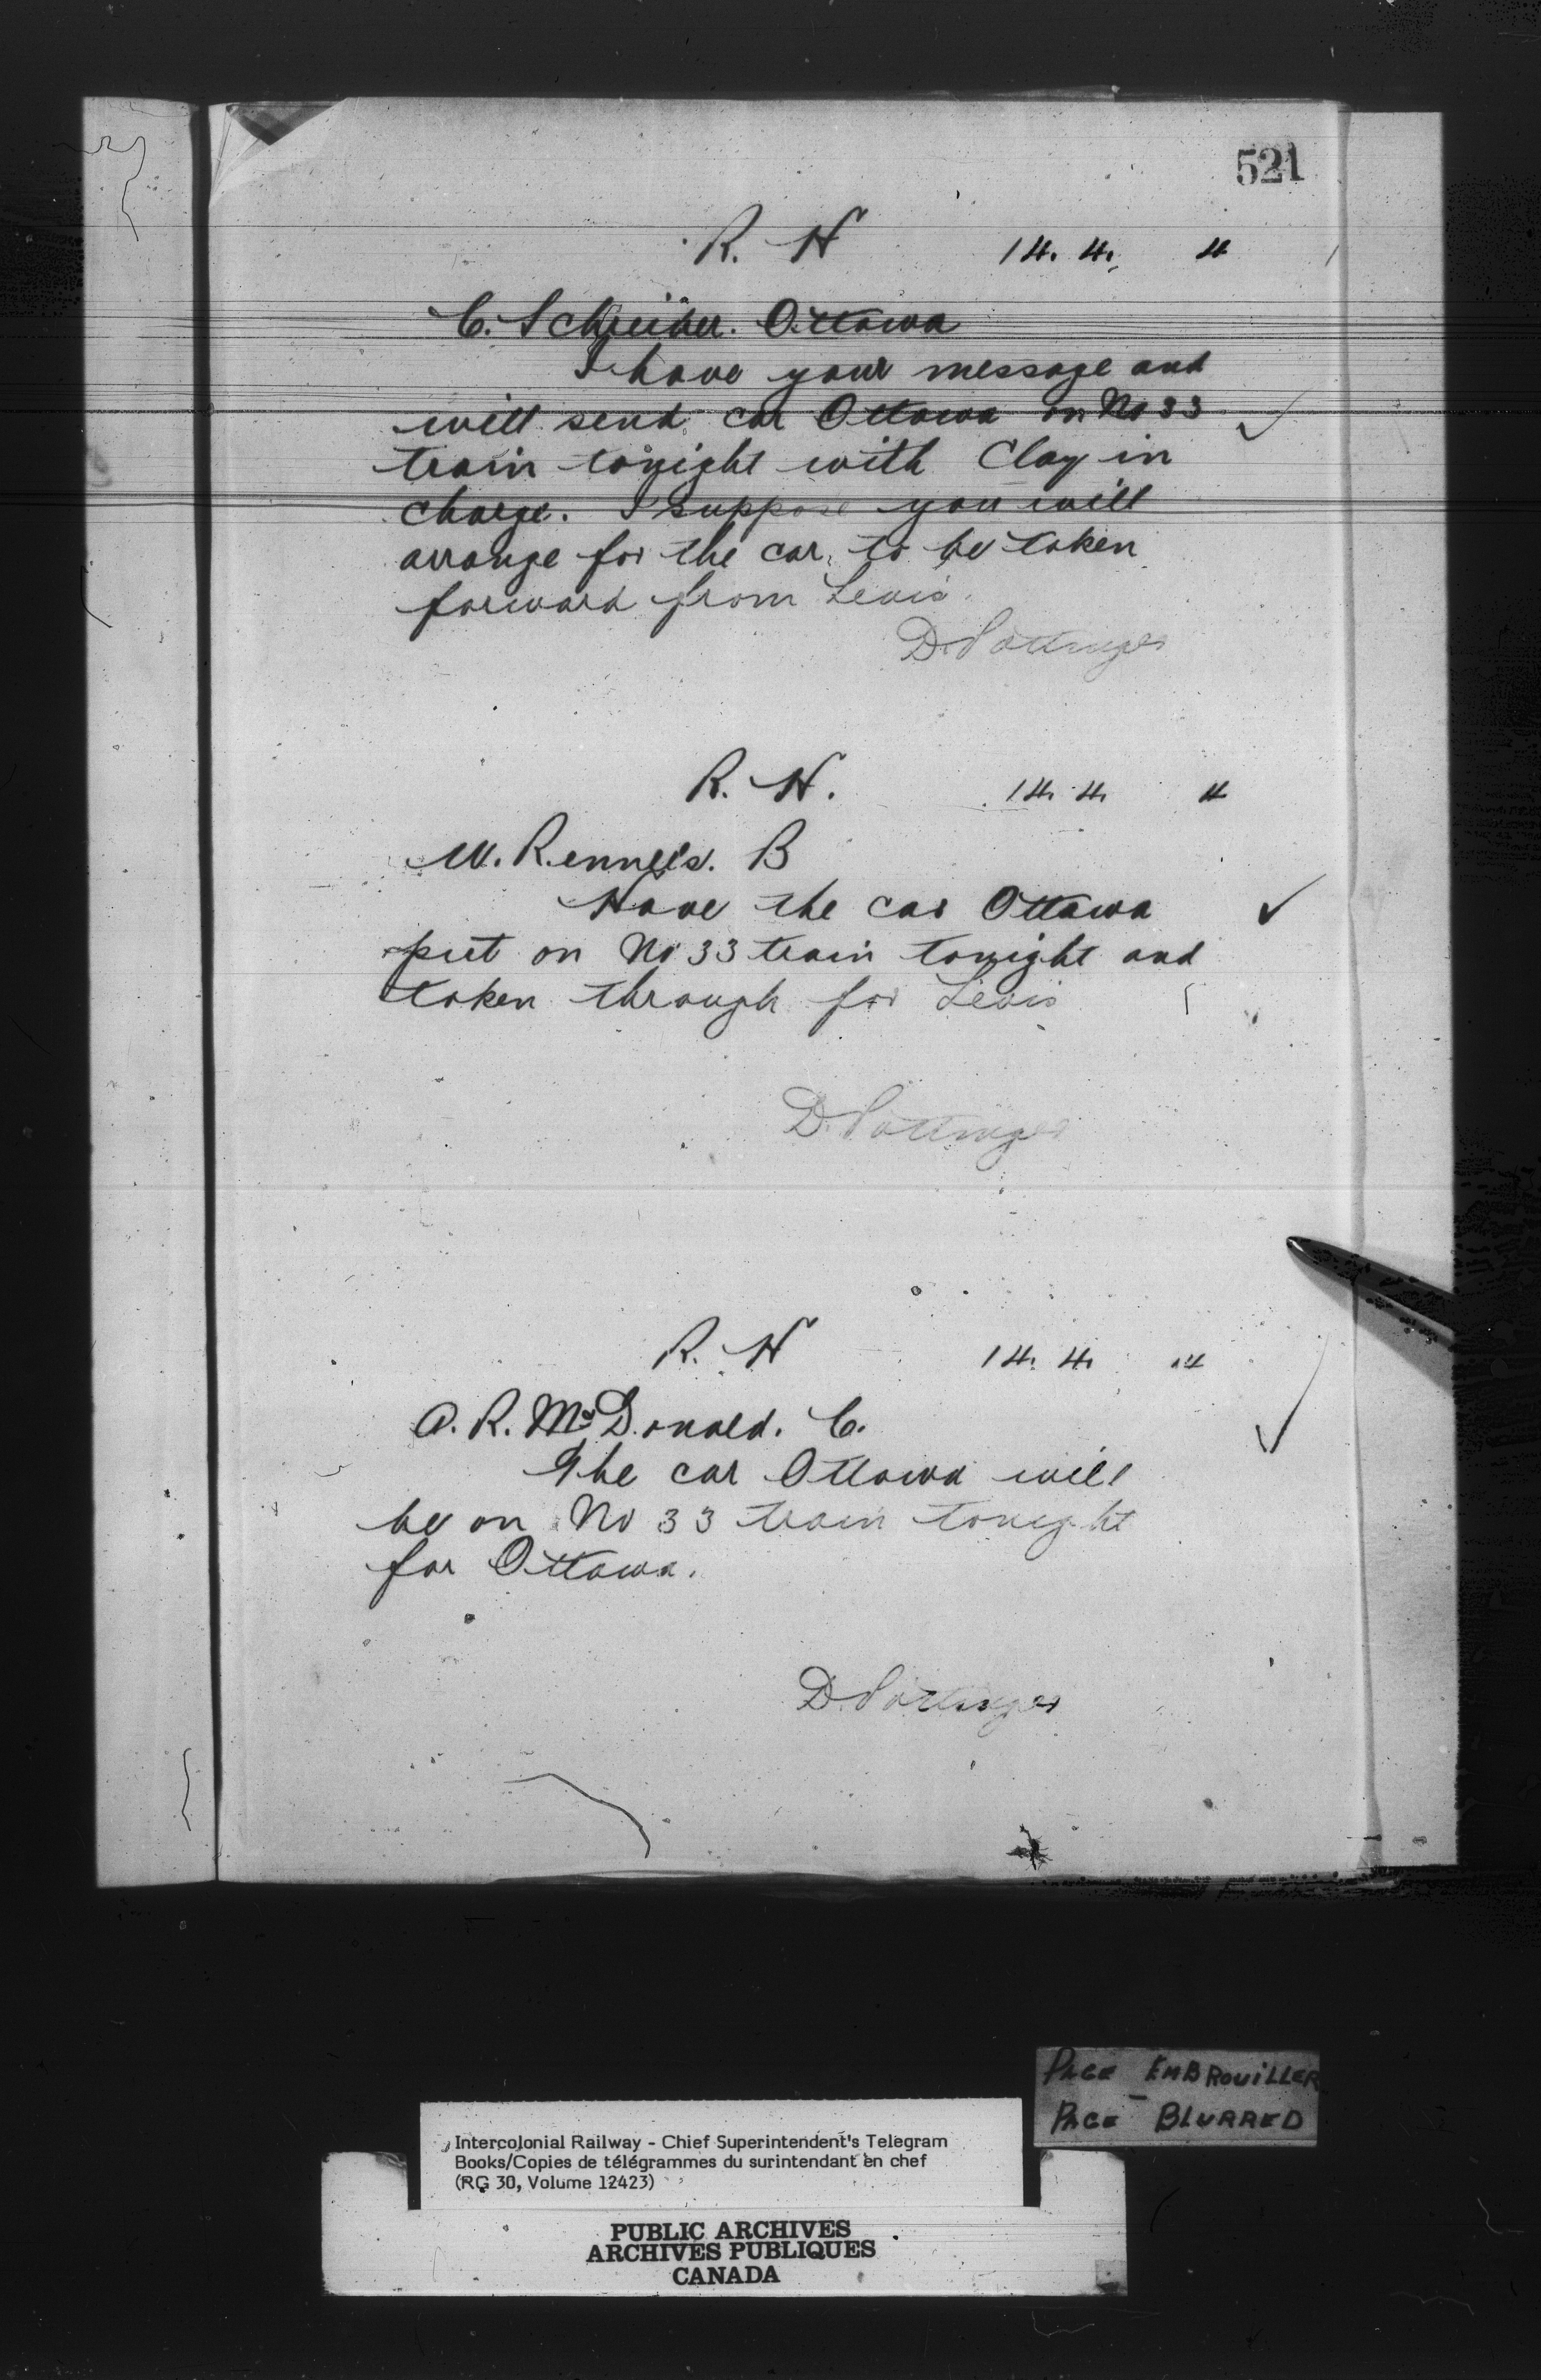 521
R. H 14. 4. 4
C. Schreiber. Ottawa
I have your message and
will send car Ottawa on No 33
train tonight with Clay in
charge. I suppose you will
arrange for the car to be taken
forward from Levis.
D. Pottinger
R. H. 14. 4. 4
W. Rennels. B
Have the car Ottawa
put on No 33 train tonight and
taken through for Levis
D. Pottinger
R. H 14. 4. 4
A. R. McDonald. C.
The car Ottawa will
be on No 33 train tonight
for Ottawa.
D. Pottinger
PAGE EMBROUILLER
PAGE BLURRED
Intercolonial Railway - Chief Superintendent's Telegram
Books/Copies de télégrammes du surintendant en chef
(RG 30, Volume 12423)
PUBLIC ARCHIVES
ARCHIVES PUBLIQUES
CANADA